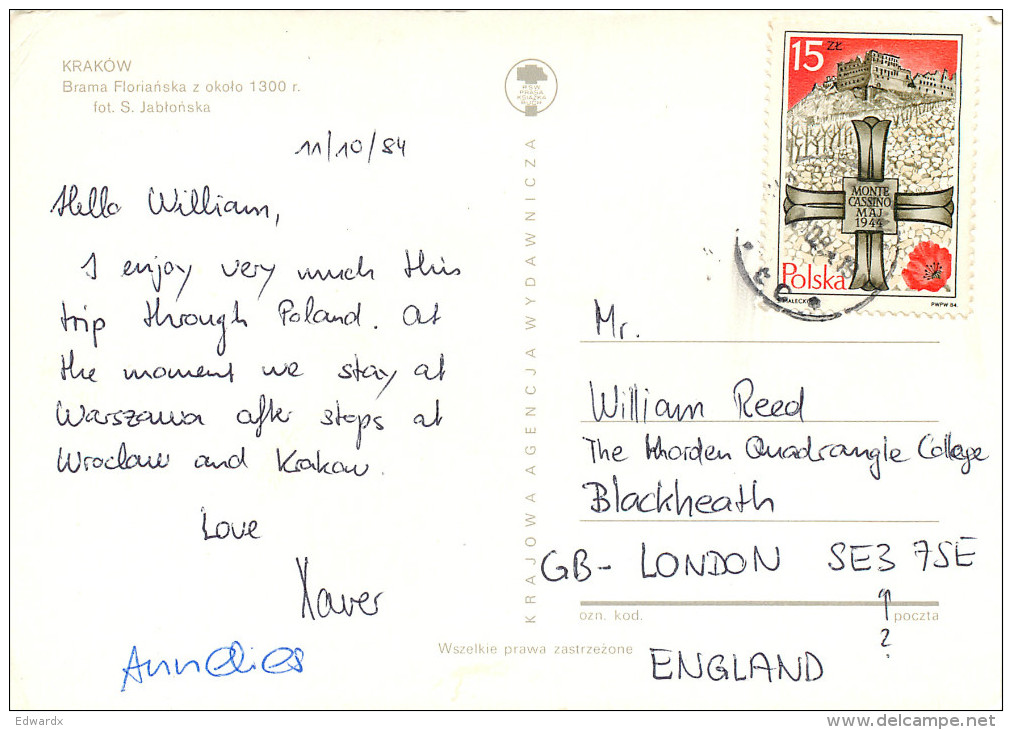 KRAKÓW
Brama Floriańska z około 1300 r.
fot. S. Jabłońska
11/10/84
Hello William,
I enjoy very much this
trip through Poland. At
the moment we stay at
Warszawa after stops at
Wroclaw and Krakow.
Love
Xaver
Annelies
RSW
PRASA
KSIĄŻKA
RUCH
KRAJOWA AGENCJA WYDAWNICZA
15 ZŁ
MONTE
CASSINO
MAJ
1944
Polska
PWPW 84.
Mr.
William Reed
The Morden Quadrangle College
Blackheath
GB- LONDON SE3 7SE
↑
?
ozn. kod.
poczta
Wszelkie prawa zastrzeżone
ENGLAND
Edwardx
www.delcampe.net